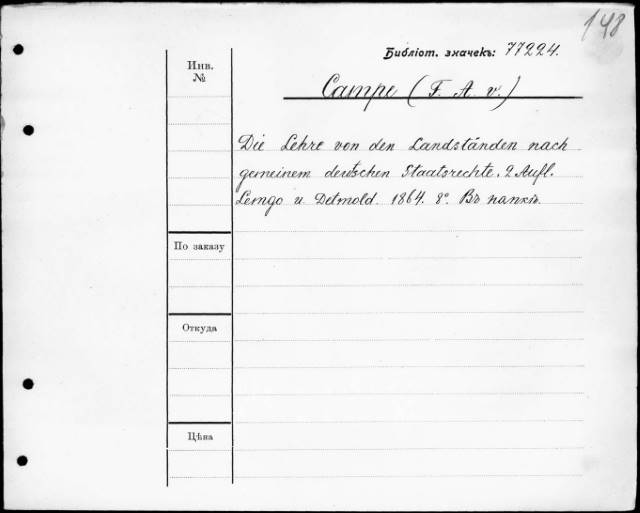 148
Библіот. значекъ: 77224.
Инв.
№
Campe (F. A. v.)
Die Lehre von den Landständen nach
gemeinem deutschen Staatsrechte. 2 Aufl.
Lemgo u. Detmold. 1864. 8°. Въ папкѣ.
По заказу
Откуда
Цѣна